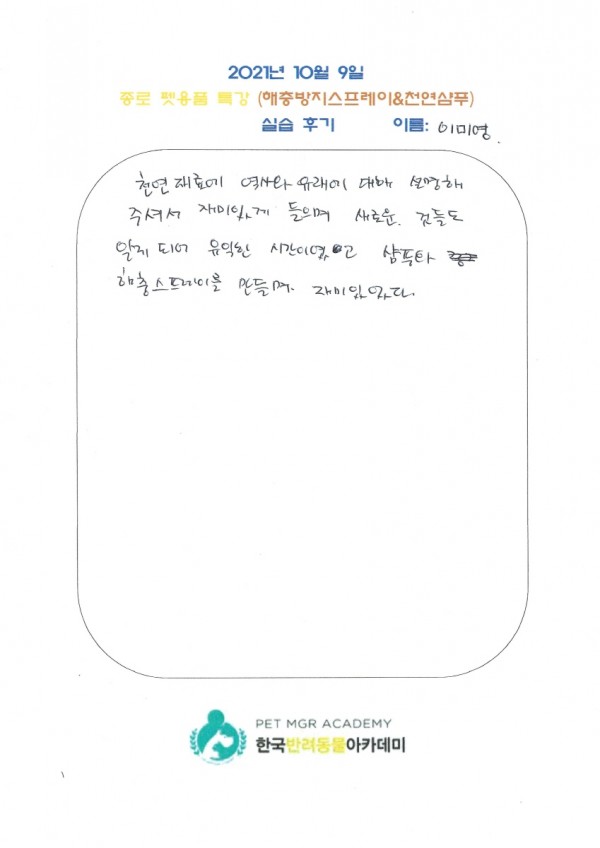 2021년 10월 9일
종로 펫용품 특강 (해충방지스프레이&천연샴푸)
실습 후기 이름: 이미영.
천연재료에 역사와 유래에 대해 설명해
주셔서 재미있게 들으며 새로운 것들도
알게 되어 유익한 시간이였고 샴푸와
해충스프레이를 만들며 재미있었다.
PET MGR ACADEMY
한국반려동물아카데미